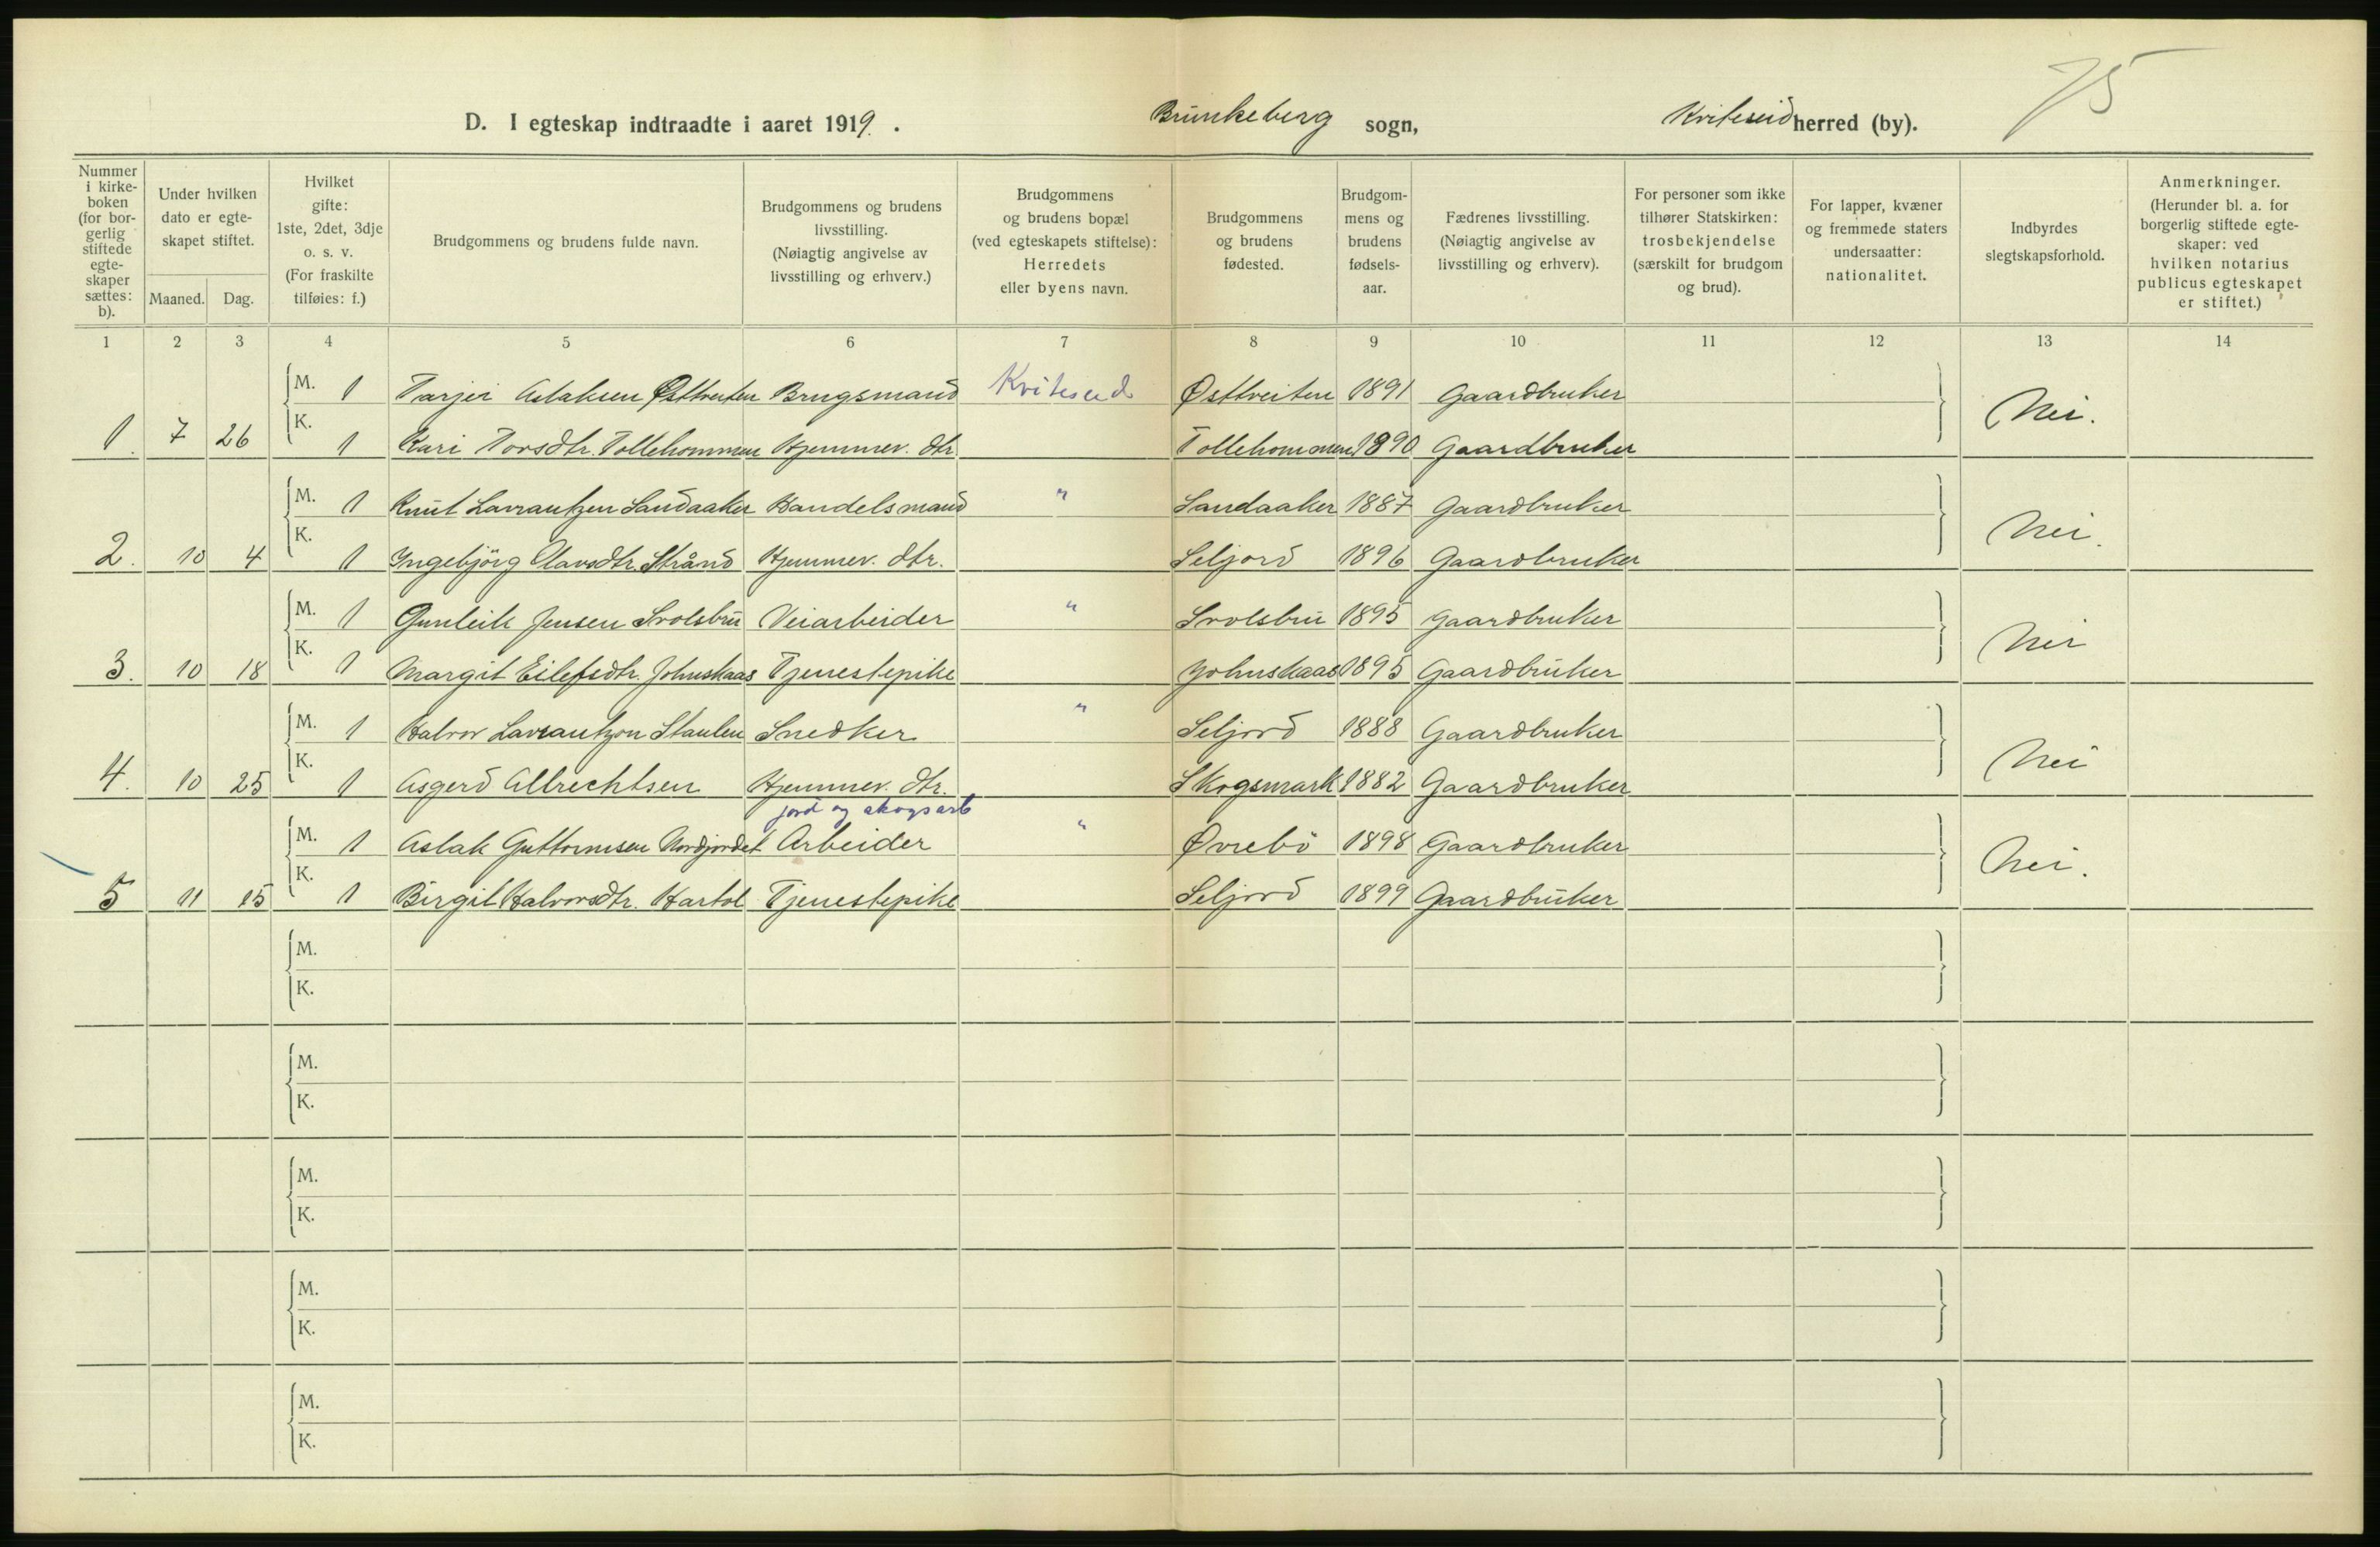 75
D. I egteskap indtraadte i aaret 1919. Brunkeberg sogn, Kviteseid herred (by).
Nummer i kirke-boken (for bor-gerlig stiftede egte-skaper sættes: b).
Under hvilken dato er egte-skapet stiftet.
Maaned. Dag.
Hvilket gifte: 1ste, 2det, 3dje o. s. v. (For fraskilte tilføies: f.)
Brudgommens og brudens fulde navn.
Brudgommens og brudens livsstilling. (Nøiagtig angivelse av livsstilling og erhverv.)
Brudgommens og brudens bopæl (ved egteskapets stiftelse): Herredets eller byens navn.
Brudgommens og brudens fødested.
Brudgom-mens og brudens fødsels-aar.
Fædrenes livsstilling. (Nøiagtig angivelse av livsstilling og erhverv).
For personer som ikke tilhører Statskirken: trosbekjendelse (særskilt for brudgom og brud).
For lapper, kvæner og fremmede staters undersaatter: nationalitet.
Indbyrdes slegtskapsforhold.
Anmerkninger. (Herunder bl. a. for borgerlig stiftede egte-skaper: ved hvilken notarius publicus egteskapet er stiftet.)
1 2 3 4 5 6 7 8 9 10 11 12 13 14
M. 1 Tarjei Aslaksen Østtveiten Brugsmand Kviteseid Østtveiten 1891 Gaardbruker
1. 7 26 K. 1 Kari Torsdtr. Tollehommen Hjemmev. dtr. Tollehommen 1890 Gaardbruker Nei.
M. 1 Knut Lavrantzen Sandaaker Handelsmand " Sandaaker 1887 Gaardbruker
2. 10 4 K. 1 Yngebjörg Olavsdtr. Strånd Hjemmev. dtr. Seljord 1896 Gaardbruker Nei.
M. 1 Gunleik Jensen Svolsbru Veiarbeider " Svolsbru 1895 Gaardbruker
3. 10 18 K. 1 Margit Eilefsdtr. Johnskaas Tjenestepike Johnskaas 1895 Gaardbruker Nei
M. 1 Halvor Lavrantzon Staulen Snedker " Seljord 1888 Gaardbruker
4. 10 25 K. 1 Asgerd Albrechtsen Hjemmev. dtr. Skogsmark 1882 Gaardbruker Nei
jord og skogsarb
M. 1 Aslak Guttormsen Nordjordet Arbeider " Øvrebö 1898 Gaardbruker
5 11 15 K. 1 Birgit Halvorsdtr. Hartol Tjenestepike Seljord 1899 Gaardbruker Nei.
M.
K.
M.
K.
M.
K.
M.
K.
M.
K.